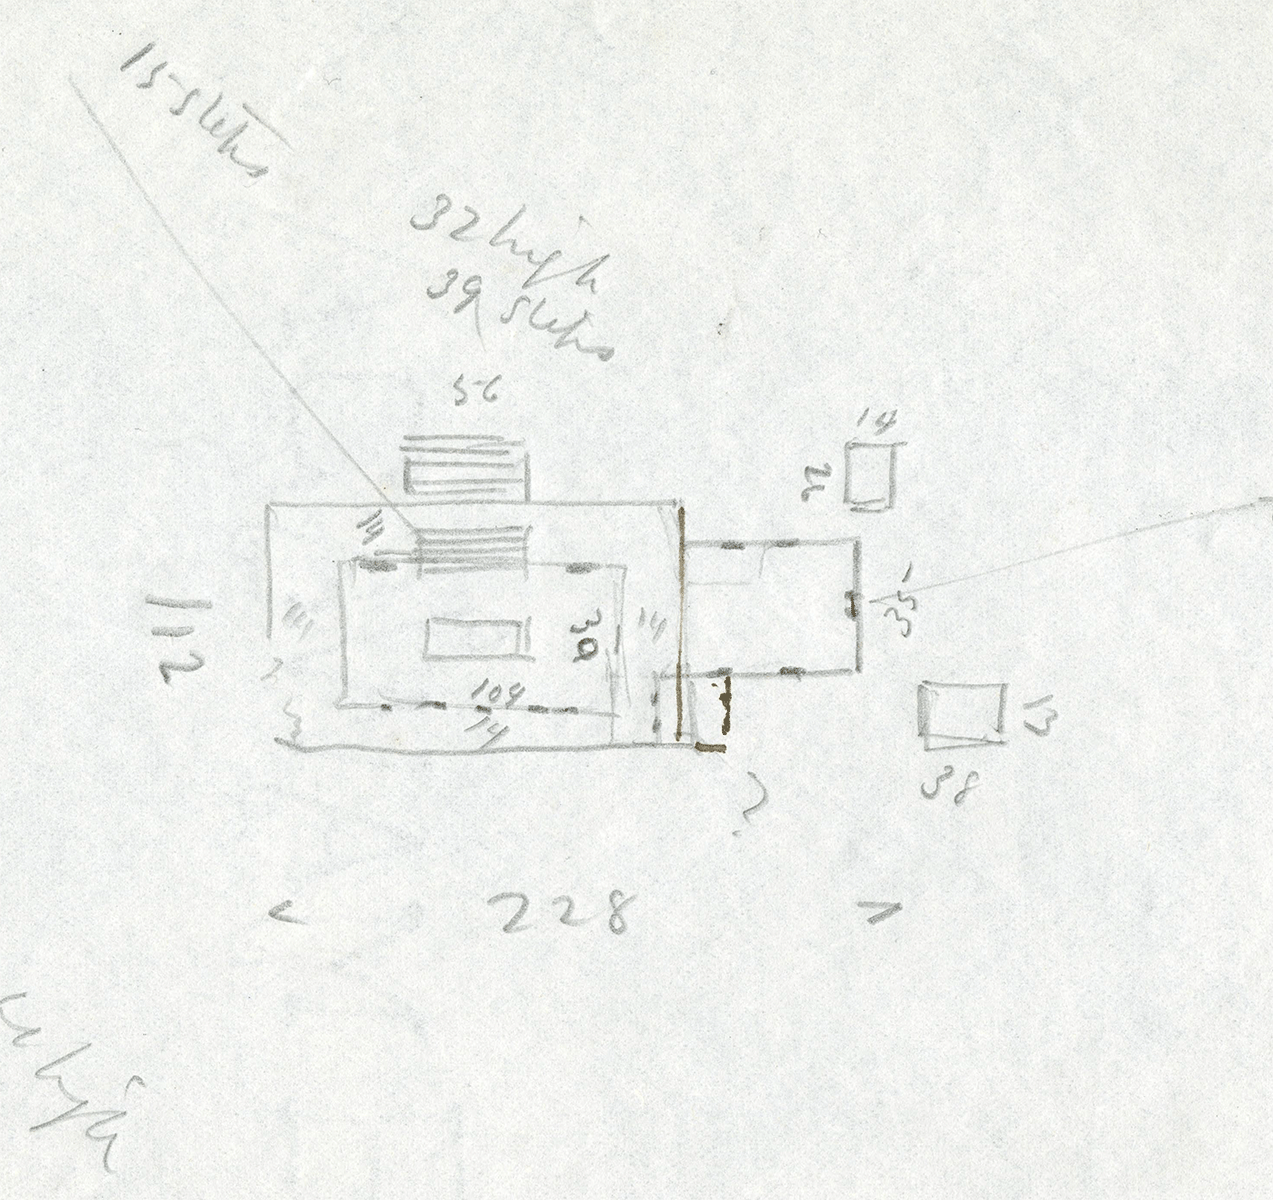 15 steps
32 high
39 steps
56
14
14
112
14
39
14
35
104
14
13
38
?
228
high